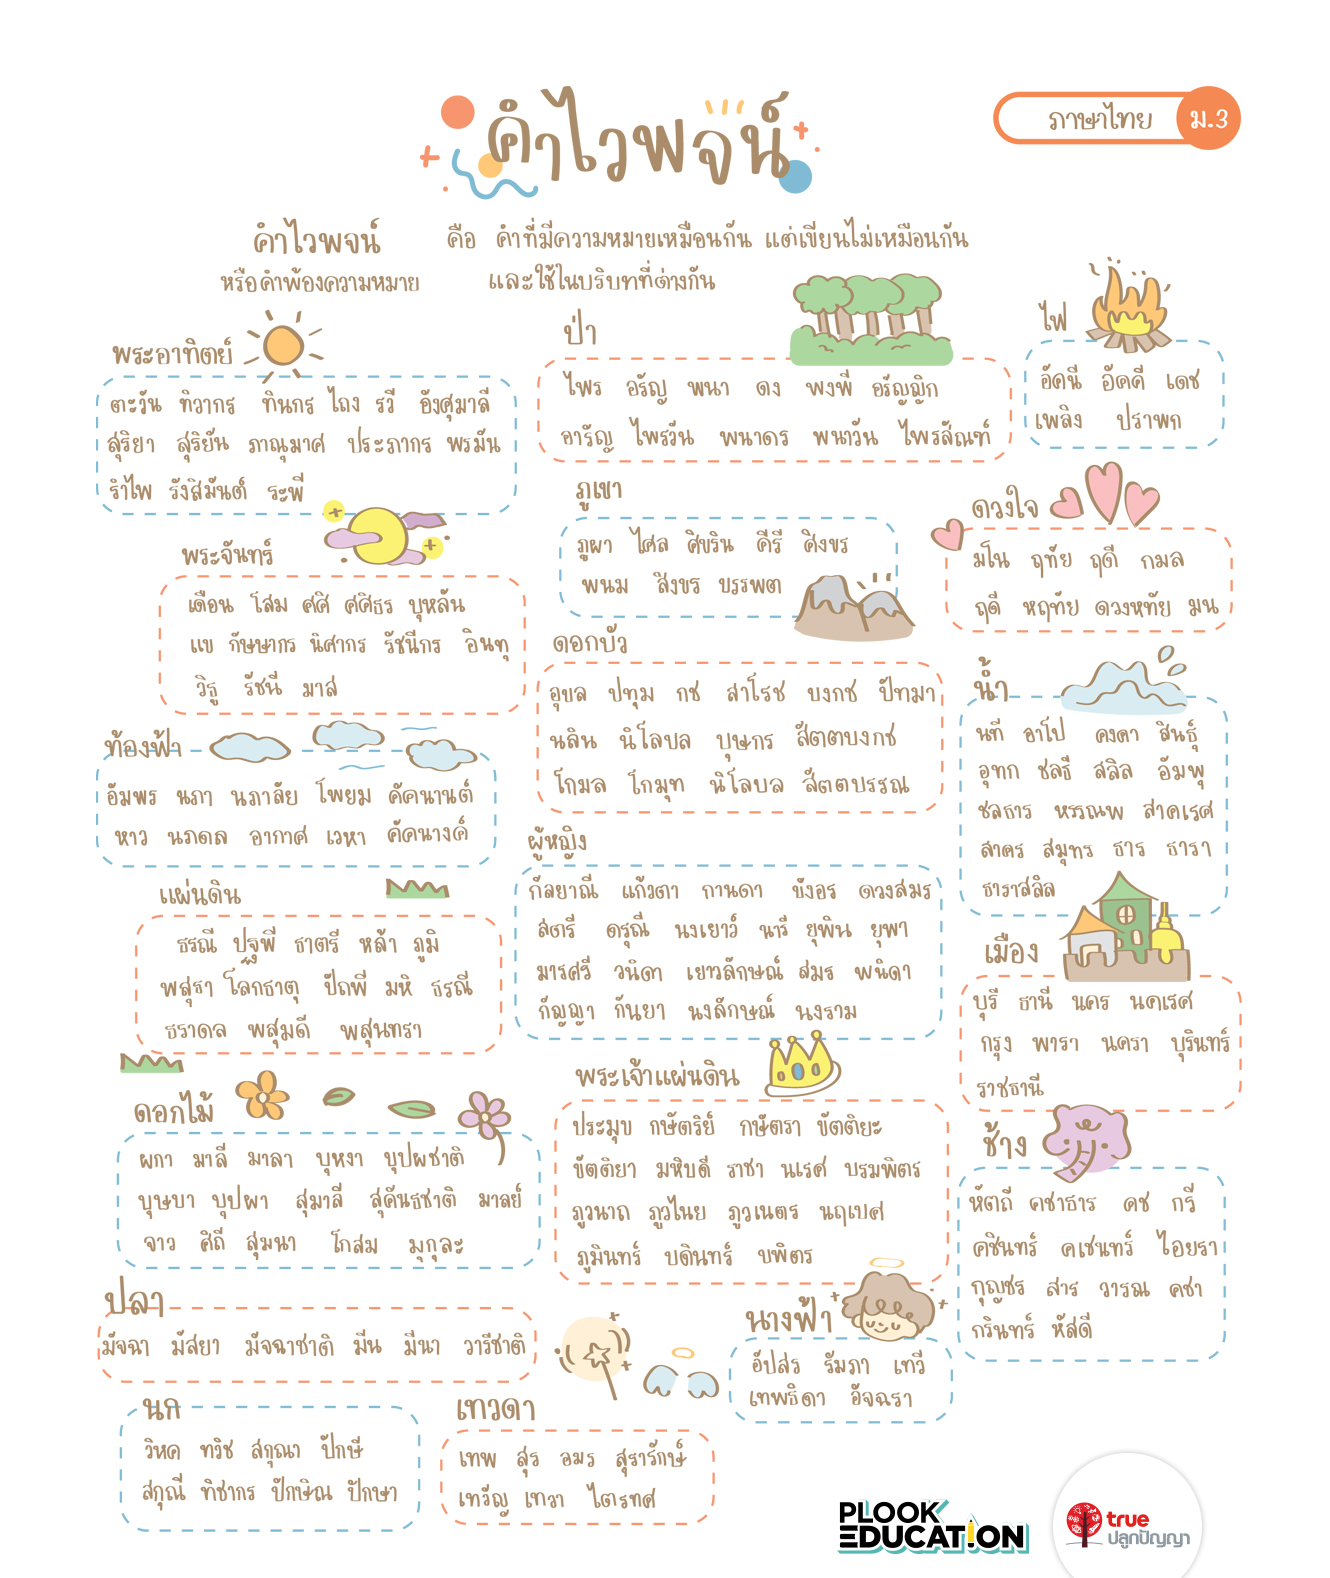 คำไวพจน์
ภาษาไทย ม.3
คำไวพจน์ คือ คำที่มีความหมายเหมือนกัน แต่เขียนไม่เหมือนกัน
หรือคำพ้องความหมาย และใช้ในบริบทที่ต่างกัน
พระอาทิตย์
ตะวัน ทิวากร ทินกร ไถง รวี อังศุมาลี
สุริยา สุริยัน ภาณุมาศ ประภากร พรมัน
รำไพ รังสิมันต์ ระพี
พระจันทร์
เดือน โสม ศศิ ศศิธร บุหลัน
แข กัษษากร นิศากร รัชนีกร อินทุ
วิธู รัชนี มาส
ท้องฟ้า
อัมพร นภา นภาลัย โพยม คัคนานต์
หาว นภดล อากาศ เวหา คัคนางค์
แผ่นดิน
ธรณี ปฐพี ธาตรี หล้า ภูมิ
พสุธา โลกธาตุ ปัถพี มหิ ธรณี
ธราดล พสุมดี พสุนทรา
ดอกไม้
ผกา มาลี มาลา บุหงา บุปผชาติ
บุษบา บุปผา สุมาลี สุคันธชาติ มาลย์
จาว ศิถี สุมนา โกสม มุกุละ
ปลา
มัจฉา มัสยา มัจฉาชาติ มีน มีนา วารีชาติ
นก
วิหค ทวิช สกุณา ปักษี
สกุณี ทิชากร ปักษิณ ปักษา
ป่า
ไพร อรัญ พนา ดง พงพี อรัญญิก
อารัญ ไพรวัน พนาดร พนาวัน ไพรสัณฑ์
ภูเขา
ภูผา ไศล ศิขริน คีรี ศิงขร
พนม สิงขร บรรพต
ดอกบัว
อุบล ปทุม กช สาโรช บงกช ปัทมา
นลิน นิโลบล บุษกร สัตตบงกช
โกมล โกมุท นิโลบล สัตตบรรณ
ผู้หญิง
กัลยาณี แก้วตา กานดา บังอร ดวงสมร
สตรี ดรุณี นงเยาว์ นารี ยุพิน ยุพา
มารศรี วนิดา เยาวลักษณ์ สมร พนิดา
กัญญา กันยา นงลักษณ์ นงราม
พระเจ้าแผ่นดิน
ประมุข กษัตริย์ กษัตรา ขัตติยะ
ขัตติยา มหิบดี ราชา นเรศ บรมพิตร
ภูวนาถ ภูวไนย ภูวเนตร นฤเบศ
ภูมินทร์ บดินทร์ บพิตร
เทวดา
เทพ สุร อมร สุรารักษ์
เทวัญ เทวา ไตรทศ
นางฟ้า
อัปสร รัมภา เทวี
เทพธิดา อัจฉรา
ไฟ
อัคนี อัคคี เดช
เพลิง ปราพก
ดวงใจ
มโน ฤทัย ฤดี กมล
ฤดี หฤทัย ดวงหทัย มน
น้ำ
นที อาโป คงคา สินธุ์
อุทก ชลธี สลิล อัมพุ
ชลธาร หรรณพ สาคเรศ
สาคร สมุทร ธาร ธารา
ธาราสลิล
เมือง
บุรี ธานี นคร นคเรศ
กรุง พารา นครา บุรินทร์
ราชธานี
ช้าง
หัตถี คชาธาร คช กรี
คชินทร์ คเชนทร์ ไอยรา
กุญชร สาร วารณ คชา
กรินทร์ หัสดี
PLOOK
EDUCATION
true
ปลูกปัญญา